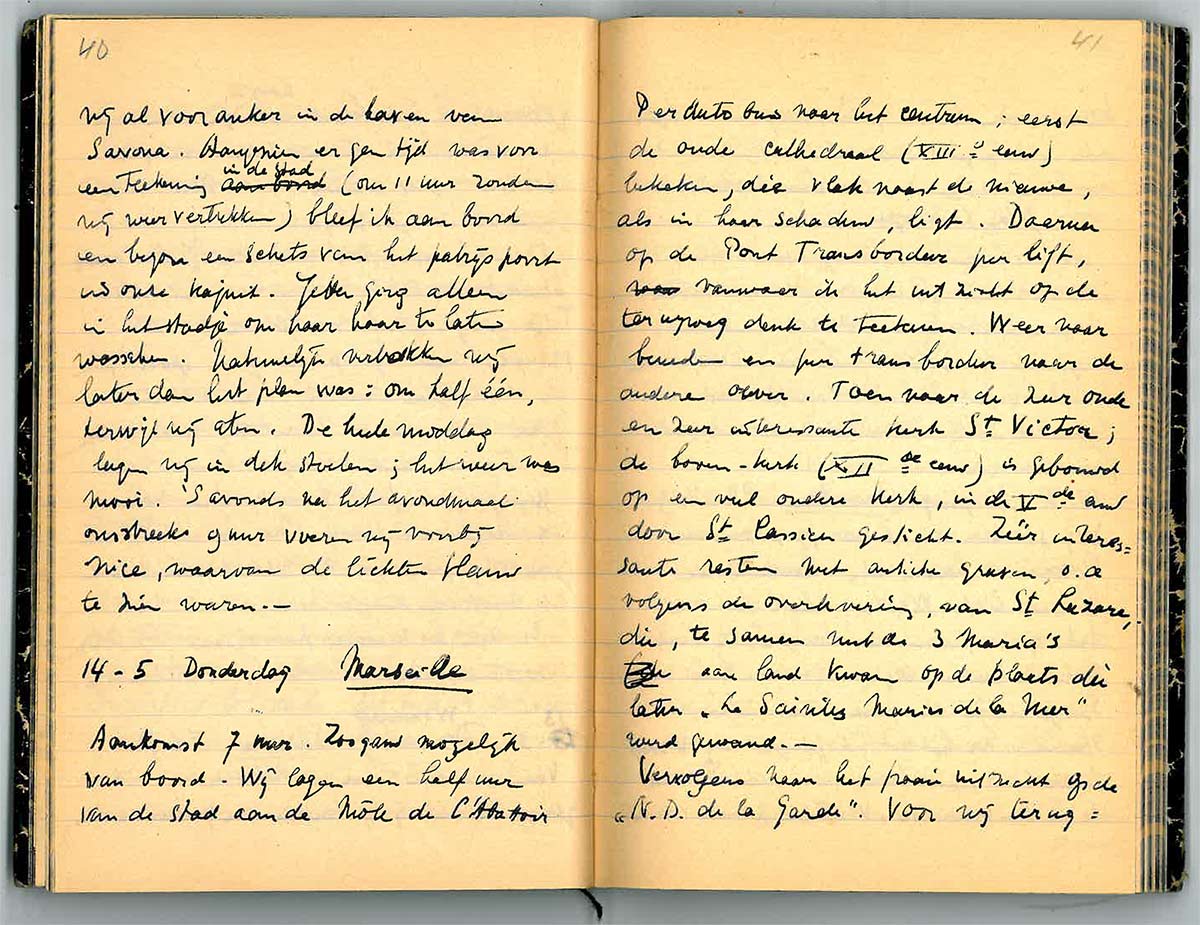 40
wij al voor anker in de haven van
Savona. Aangezien er geen tijd was voor
een teekening in de stad aan boord (om 11 uur zouden
wij weer vertrekken) bleef ik aan boord
en begon een schets van het patrijspoort
in onze kajuit. Jetta ging alleen
in het stadje om haar haar te laten
wasschen. Natuurlijk vertrokken wij
later dan het plan was: om half één,
terwijl wij aten. De heele middag
lagen wij in dek stoelen; het weer was
mooi. 's Avonds na het avondmaal
omstreeks 9 uur voeren wij voorbij
Nice, waarvan de lichten flauw
te zien waren.—
14-5 Donderdag Marseille
Aankomst 7 uur. Zoo gauw mogelijk
van boord - Wij lagen een half uur
van de stad aan de Môle de l'Abattoir
41
Per autobus naar het centrum; eerst
de oude cathedraal (XIIIe eeuw)
bekeken, die vlak naast de nieuwe,
als in haar schaduw, ligt. Daarna
op de Pont Transbordeur per lift,
vanwaar ik het uitzicht op de
terugweg denk te teekenen. Weer naar
beneden en per transbordeur naar de
andere oever. Toen naar de zeer oude
en zeer interessante kerk St Victor;
de boven-kerk (XIIde eeuw) is gebouwd
op een veel oudere kerk, in de Vde eeuw
door St Cassien gesticht. Zéér interes=
sante resten met antieke graven, o.a
volgens de overlevering, van St Lazare,
die, te samen met de 3 Maria's
aan land kwam op de plaats die
later „Le Saintes Maries de la Mer"
werd genaamd.—
Vervolgens naar het fraaie uitzicht op de
„N.D. de la Garde". Voor wij terug=